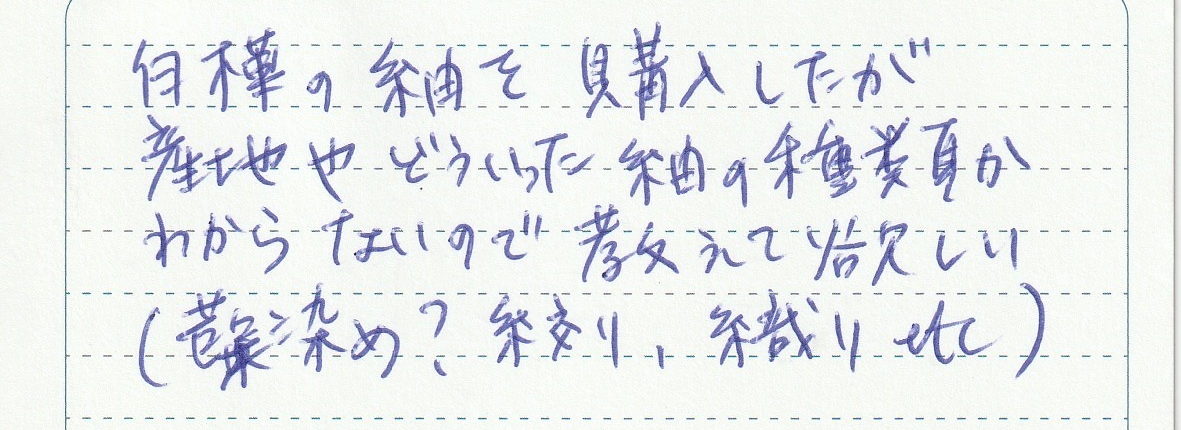 白樺の紬を購入したが
産地やどういった紬の種類か
わからないので教えて欲しい
(草木染め?絞り、織りetc)